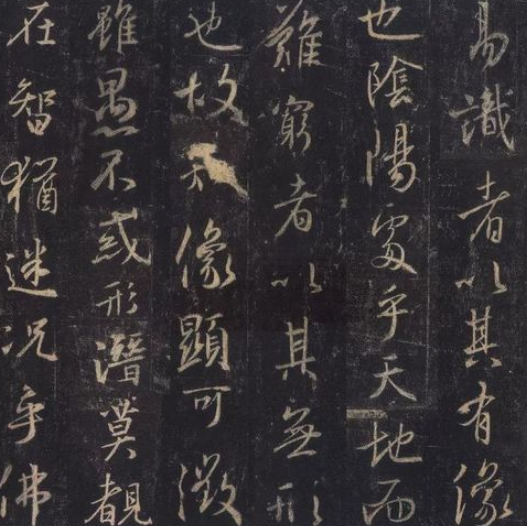 易識者以其有像
也陰陽處乎天地而
難窮者以其無形
也故像顯可徵
雖愚不惑形潛莫覩
在智猶迷况乎佛